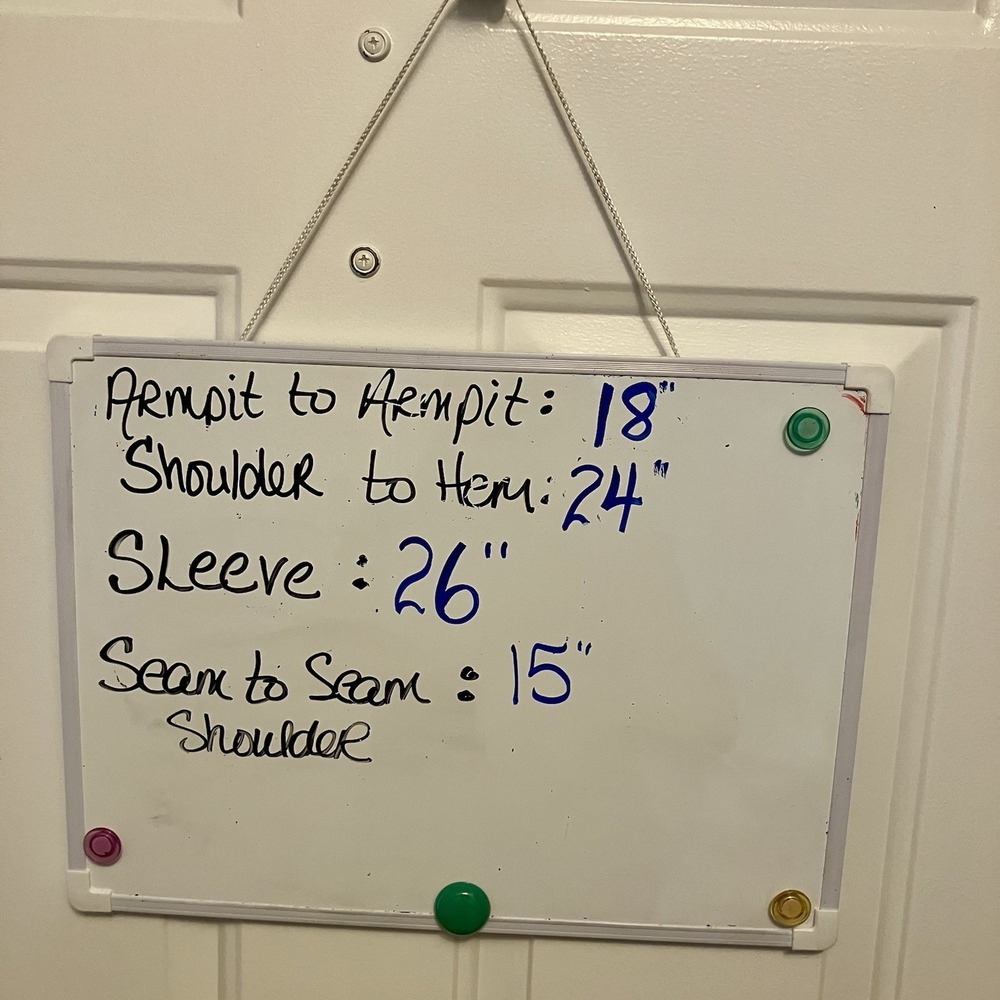 Armpit to Armpit: 18"
Shoulder to Hem: 24"
Sleeve: 26"
Seam to Seam: 15"
Shoulder